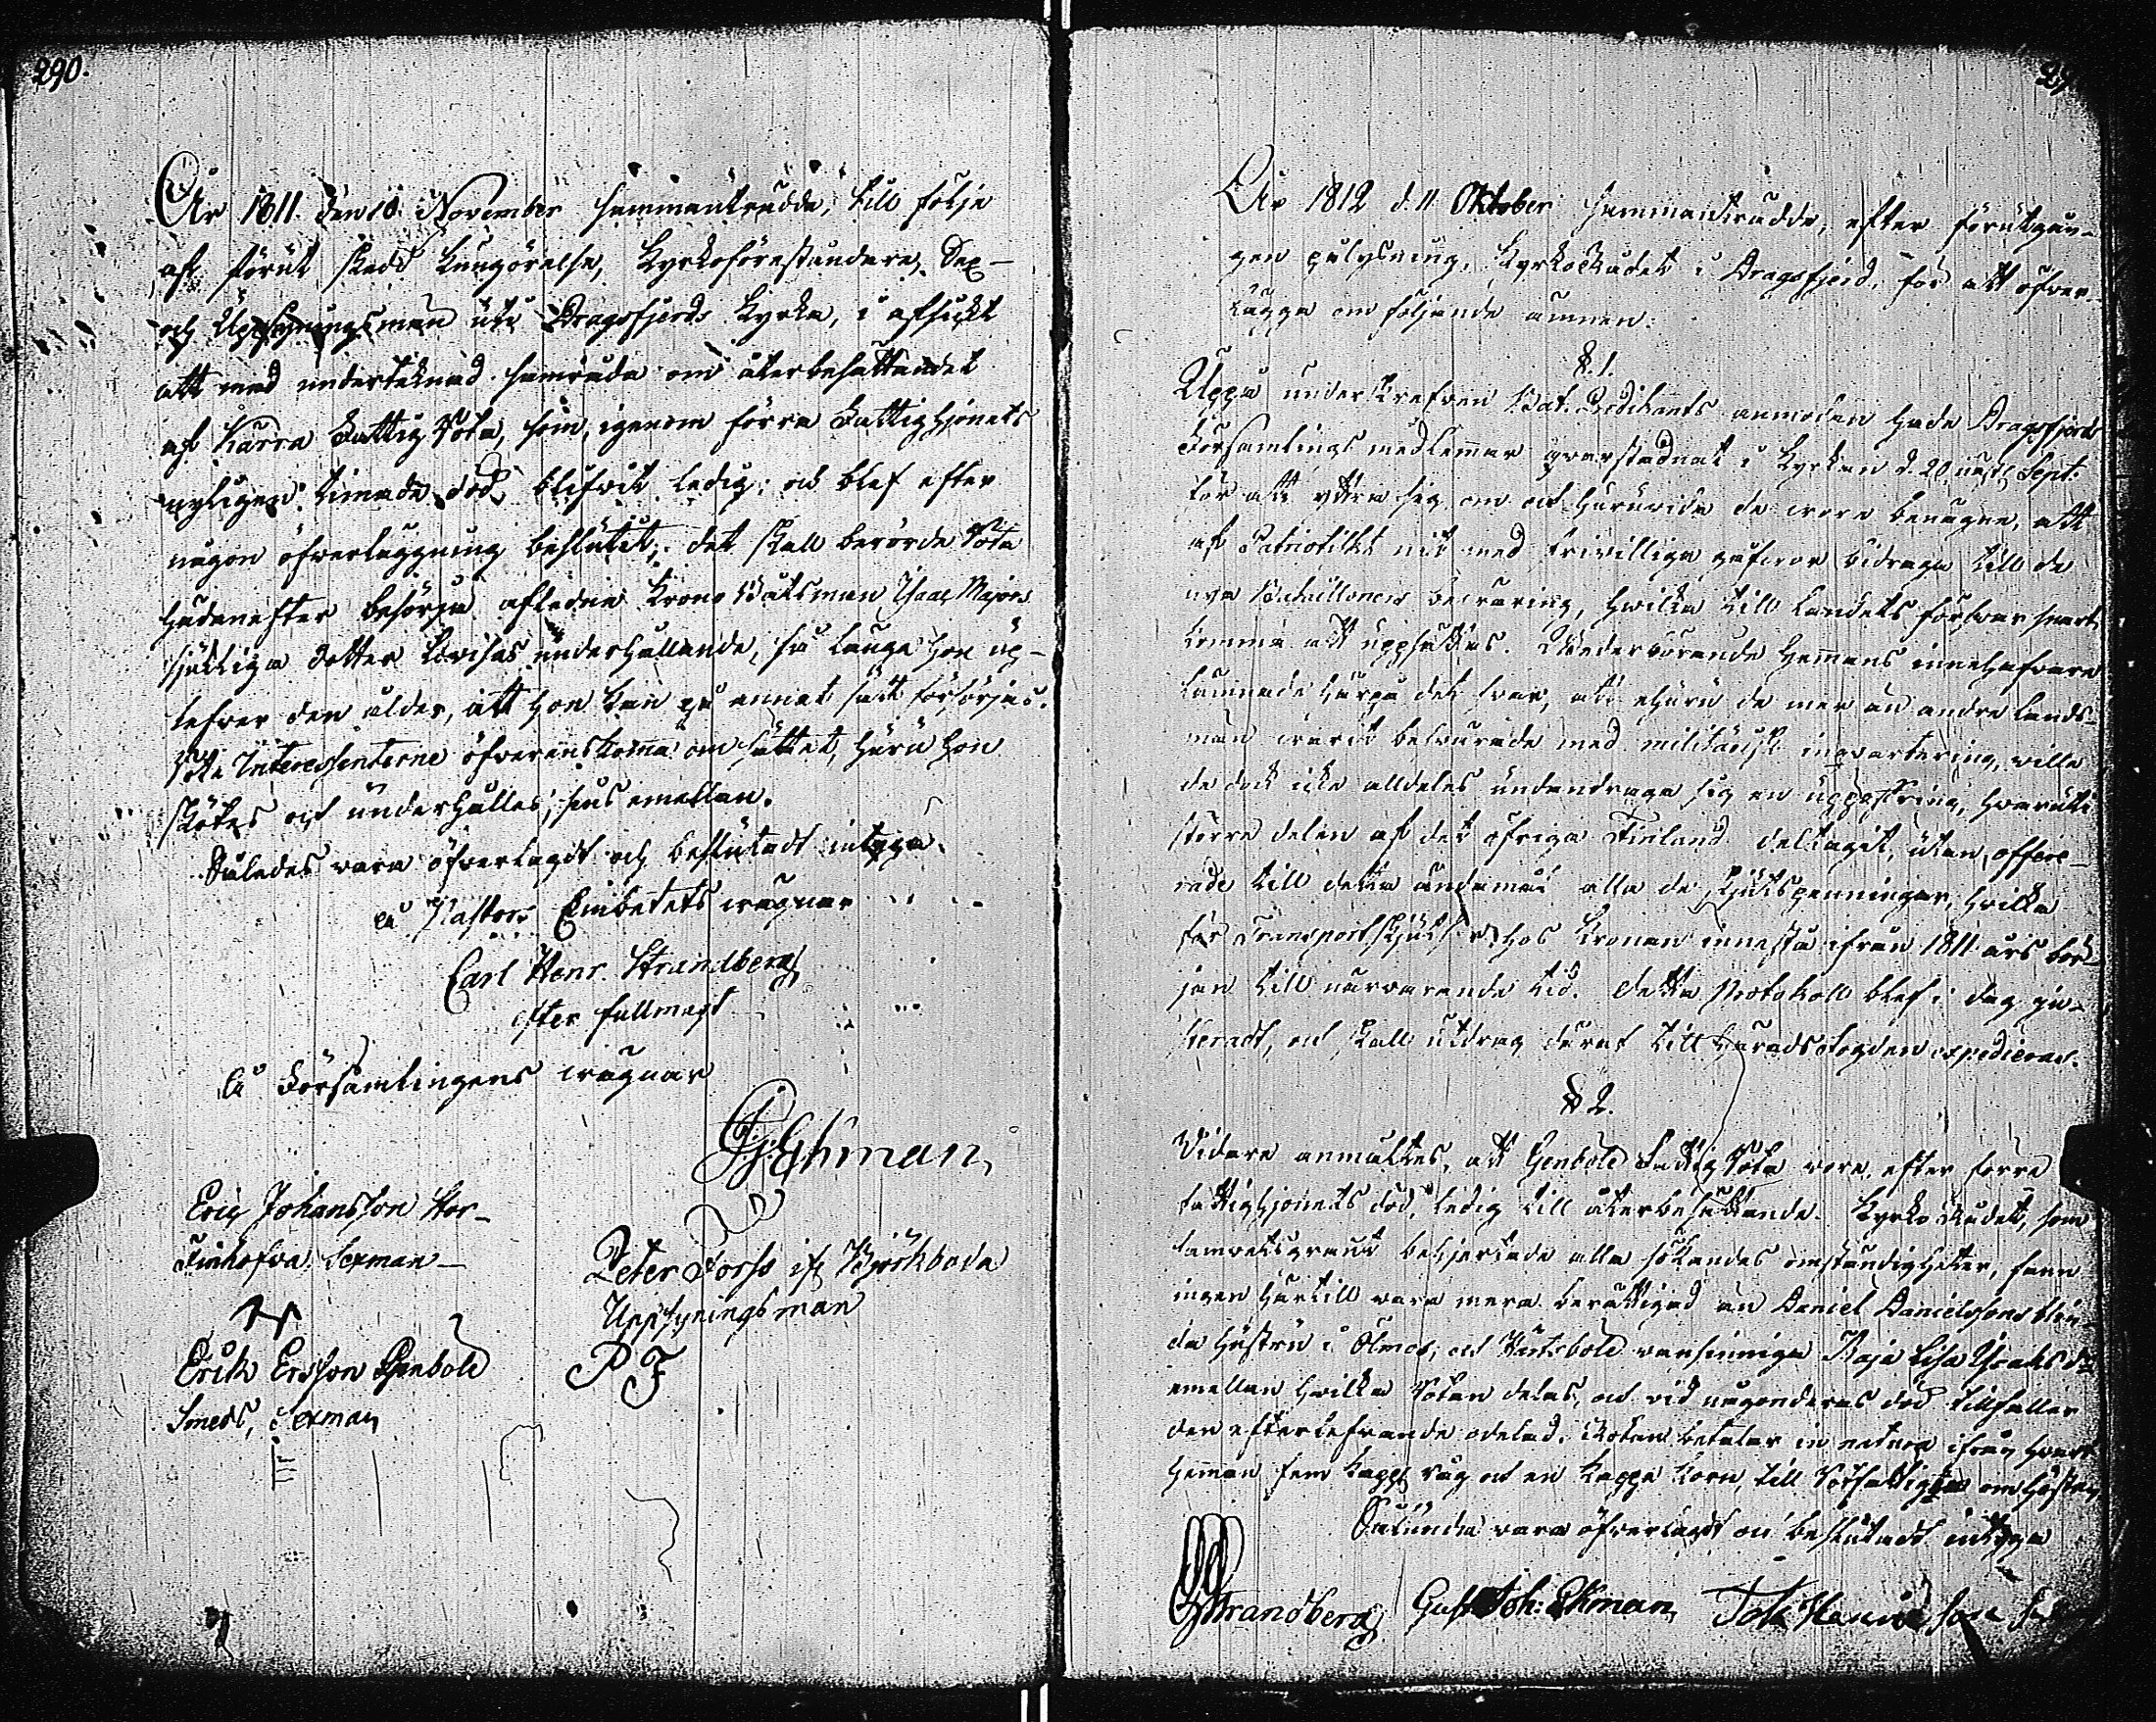 290.
År 1811. den 10. November sammanträdde, till följe
af förut skedd kungörelse, Kyrkoföreståndare, Sex-
och Uppsyningsmän uti Dragsfjerds Kyrka, i afsickt
att med undertecknad samråda om återbesättandet
af Kärra Fattig Rota, som, igenom förra Fattighjonets
nyligen timade död, blifvit ledig; och blef efter
någon öfverläggning beslutit, det skall berörde Rota
hädanefter besörja aflednе Krono Båtsman Isaac Majors
sjukliga dotter Lovisas underhållande, så länge hon up-
lefver den ålder, att hon kan på annat sätt försörjas.
Rote Interessenterne öfverenskomma om sättet, huru hon
skötes och underhålles, sins emellan.
Således vara öfverlagdt och beslutadt intyga.
På Pastors Embetets vägnar
Carl Henr. Strandberg
efter fullmagt
På Församlingens vägnar
G. J. Ekman
Eric Johansson Stor-
Finhofva Sexman
Peter Forss if. Björkboda
Uppsyningsman
P F
Erik Ersson Genböle
Smeds, Sexman
År 1812 d. 11 Oktober sammanträdde, efter förutgån-
gen pålysning, Kyrkorådet i Dragsfjerd, för att öfver-
lägga om följande ämnen:
§. 1.
Uppå underskrefven Bat. Predikants anmodan hade Dragsfjerds
Församlings medlemmar qvarstadnat i Kyrkan d. 20 näst. Sept.
för att yttra sig om och huruvida de voro benägne, att
af Patriotiskt nit med frivilliga gåfvor bidraga till de
nya Batalloners beväring, hvilka till Landets försvar snart
komma att uppsättas. Vederbörande Hemmans innehafvare
lämnade härpå det svar, att ehuru de mer än andre Lands-
män varit besvärade med militärisk inqvartering, ville
de dock icke alldeles undandraga sig en uppoffring, hvaruti
större delen af det öfriga Finland deltagit, utan offere-
rade till detta ändamål alla de Skjutspenningar, hvilka
för Transportskjutser hos Kronan innestå ifrån 1811 års bör-
jan till närvarande tid. Detta Protokoll blef i dag ju-
steradt, och skall utdrag deraf till Häradsfogden expedieras.
§ 2.
Vidare anmältes, att Genböle Fattig Rota vore efter förra
fattighjonets död, ledig till återbesättande. Kyrko Rådet, som
samvetsgrant behjertade alla sökandes omständigheter, fann
ingen härtill vara mera berättigad än Daniel Danielssons blin-
da hustru i Ölmos, och Härtsböle vansinniga Maja Lisa Isaksdr
emellan hvilka Rotan delas, och vid någonderas död tillfaller
den efterlefvande odelad. Rotan betalar in natura ifrån hvart
Hemman fem kapp. råg och en kappe korn, till Rotfattigen om hösten
Sålunda vara öfverlagdt och beslutadt intyga
CHStrandberg Gust. Joh: Ekman